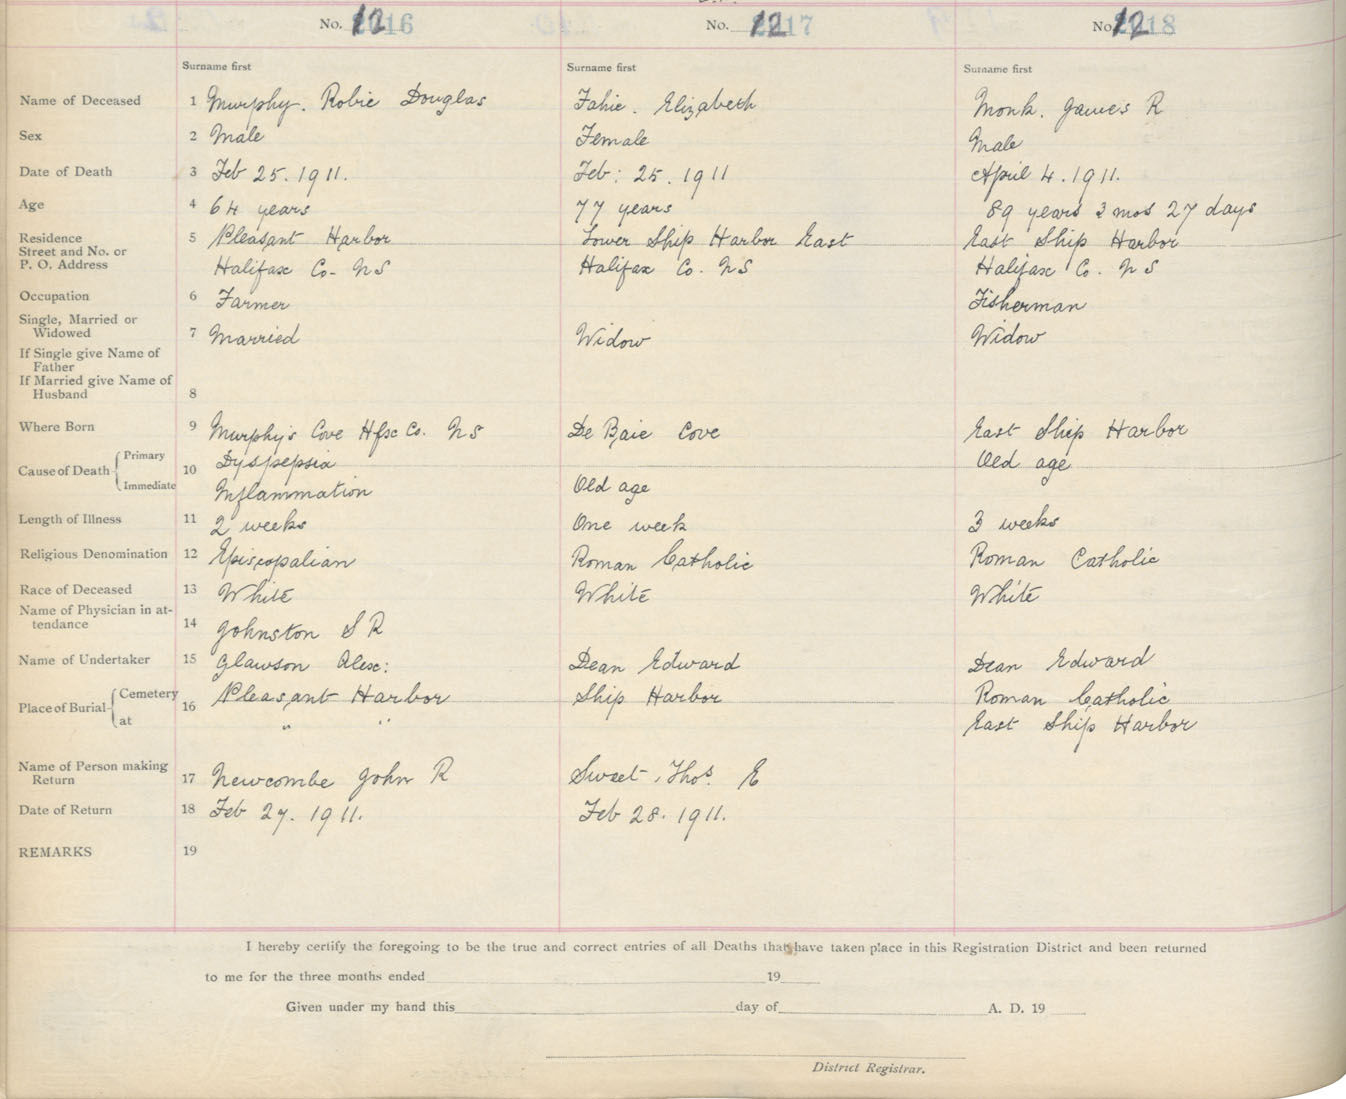 No. 1216 No. 1217 No. 1218
Surname first Surname first Surname first
Name of Deceased 1 Murphy. Robie Douglas Fahie. Elizabeth Monk. James R
Sex 2 Male Female Male
Date of Death 3 Feb 25. 1911. Feb: 25. 1911 April 4. 1911.
Age 4 64 years 77 years 89 years 3 mos 27 days
Residence 5 Pleasant Harbor Lower Ship Harbor East East Ship Harbor
Street and No. or
P. O. Address Halifax Co. NS Halifax Co. NS Halifax Co. NS
Occupation 6 Farmer Fisherman
Single, Married or
Widowed 7 Married Widow Widow
If Single give Name of
Father
If Married give Name of
Husband 8
Where Born 9 Murphy's Cove Hfx Co. NS De Baie Cove East Ship Harbor
Cause of Death Primary 10 Dyspepsia Old age
Immediate Inflammation Old age
Length of Illness 11 2 weeks One week 3 weeks
Religious Denomination 12 Episcopalian Roman Catholic Roman Catholic
Race of Deceased 13 White White White
Name of Physician in at-
tendance 14 Johnston S R
Name of Undertaker 15 Glawson Alex: Dean Edward Dean Edward
Place of Burial Cemetery 16 Pleasant Harbor Ship Harbor Roman Catholic
at " " East Ship Harbor
Name of Person making
Return 17 Newcombe John R Sweet, Thos. E
Date of Return 18 Feb 27. 1911. Feb 28. 1911.
REMARKS 19
I hereby certify the foregoing to be the true and correct entries of all Deaths that have taken place in this Registration District and been returned
to me for the three months ended 19
Given under my hand this day of A. D. 19
District Registrar.